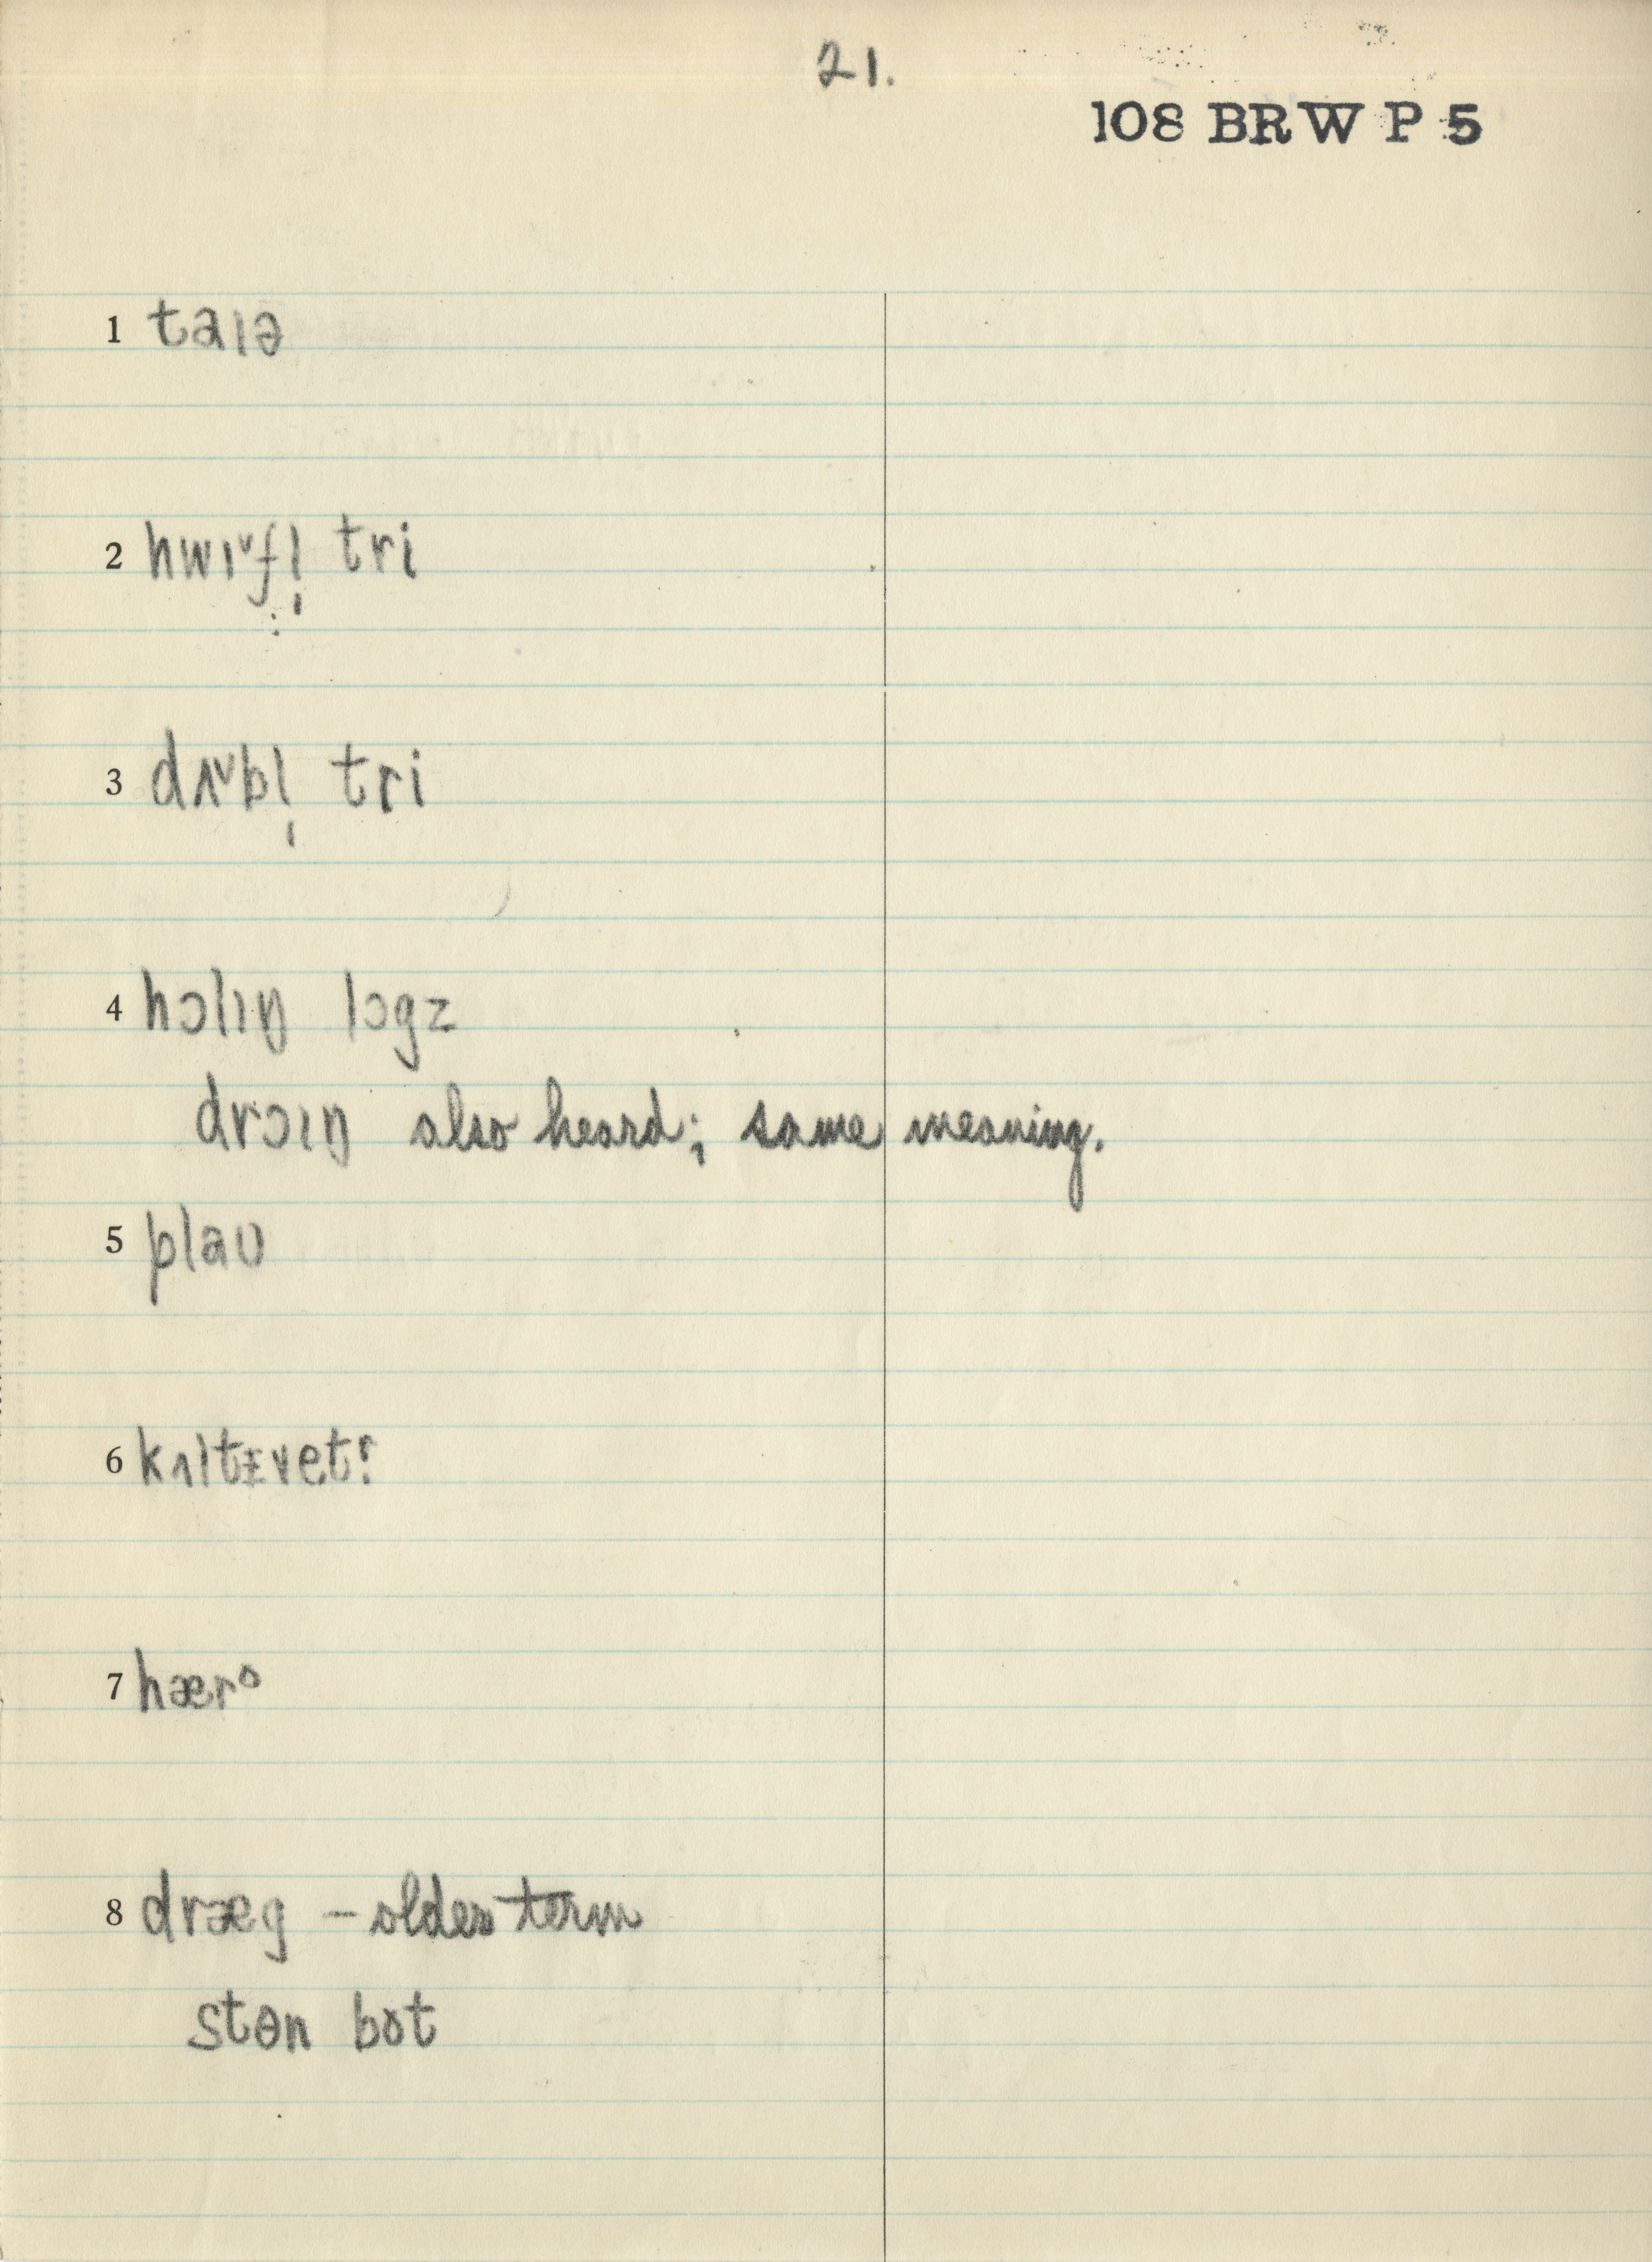 21.
108 BRW P 5
1 taɪə
2 hwɪ˅fl̩ tri
3 dʌ˅bl̩ tri
4 hɔlɪŋ lɔgz
drɔɪŋ also heard; same meaning.
5 plaʊ
6 kʌltɪvetɚ
7 hærᵒ
8 dræg – older term
stɵn bot